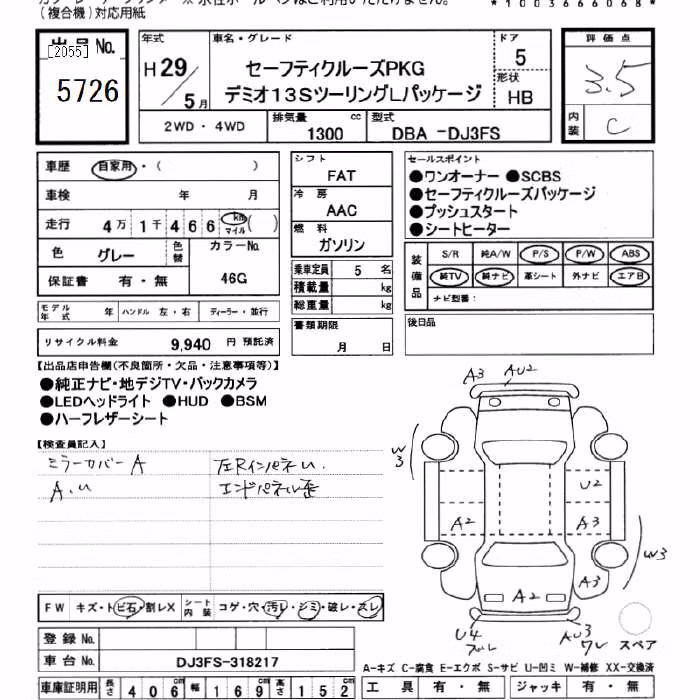 (複合機)対応用紙
*1003666068*
出品No.
[2055]
5726
年式
H 29/5月
車名・グレード
セーフティクルーズPKG
デミオ13SツーリングLパッケージ
ドア
5
形状
HB
2WD・4WD
排気量
1300 cc
型式
DBA -DJ3FS
評価点
3.5
内装
C
車歴 自家用・( )
車検 年 月
走行 4万1千466 km マイル ( )
色 グレー 色替 カラーNo.
46G
保証書 有・無
モデル年式 年 ハンドル 左・右 ディーラー・並行
リサイクル料金 9,940 円 預託済
シフト
FAT
冷房
AAC
燃料
ガソリン
乗車定員 5 名
積載量 kg
総重量 kg
書類期限
月 日
セールスポイント
●ワンオーナー ●SCBS
●セーフティクルーズパッケージ
●プッシュスタート
●シートヒーター
装備品
S/R 純A/W P/S P/W ABS
純TV 純ナビ 革シート 外ナビ エアB
ナビ型番:
後日品
【出品店申告欄(不良箇所・欠品・注意事項等)】
●純正ナビ・地デジTV・バックカメラ
●LEDヘッドライト ●HUD ●BSM
●ハーフレザーシート
【検査員記入】
ミラーカバー A
A.U
左RインパネU.
エンドパネル歪
A3 AU2
W3
U2
A2 A3
W3
A3
A2
U4
AU3
ワレ
スペア
FW キズ・トビ石・割レX シート内装 コゲ・穴・汚レ・シミ・破レ・スレ
登録No.
車台No. DJ3FS-318217
車庫証明用 長さ 406cm 幅 169cm 高さ 152cm
A-キズ C-腐食 E-エクボ S-サビ U-凹ミ W-補修 XX-交換済
工具 有・無 ジャッキ 有・無